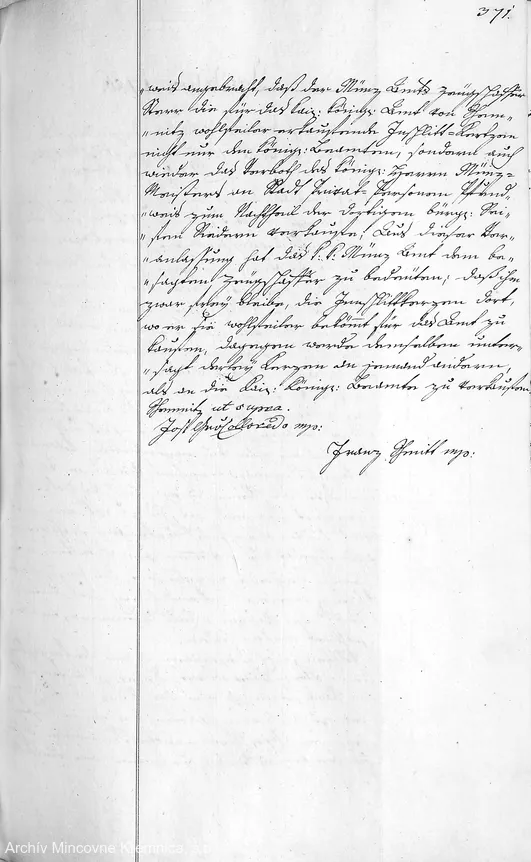 371.
„weis angebracht, daß der Münz Amts Zeugschaffer
Sterr die für das kais: königl: Amt von Schem-
„nitz wohlfeiler erkaufende Inschlitt-Kertzen
nicht nur den königl: Beamten, sondern auch
wieder das Verboth des königl: Herrn Münz-
Meisters an Stadt Privat-Personen Pfund-
„weis zum Nachtheil der dortigen bürgl: Sei-
„fen Siedern verkaufe; Aus dieser Ver-
„anlassung hat das k: k: Münz Amt dem be-
„sagten Zeugschaffer zu bedeuten; daß ihm
zwar frey bleibe, die Innslittkerzen dort,
wo er sie wohlfeiler bekömt für das Amt zu
kaufen, dagegen werde demselben unter-
„sagt derley Kerzen an jemand andern,
als an die kais: königl: Beamte zu verkaufen
Schemnitz ut supra.
Jos: Colloredo mp:
Franz Schmitt mp:
Archív Mincovne Kremnica